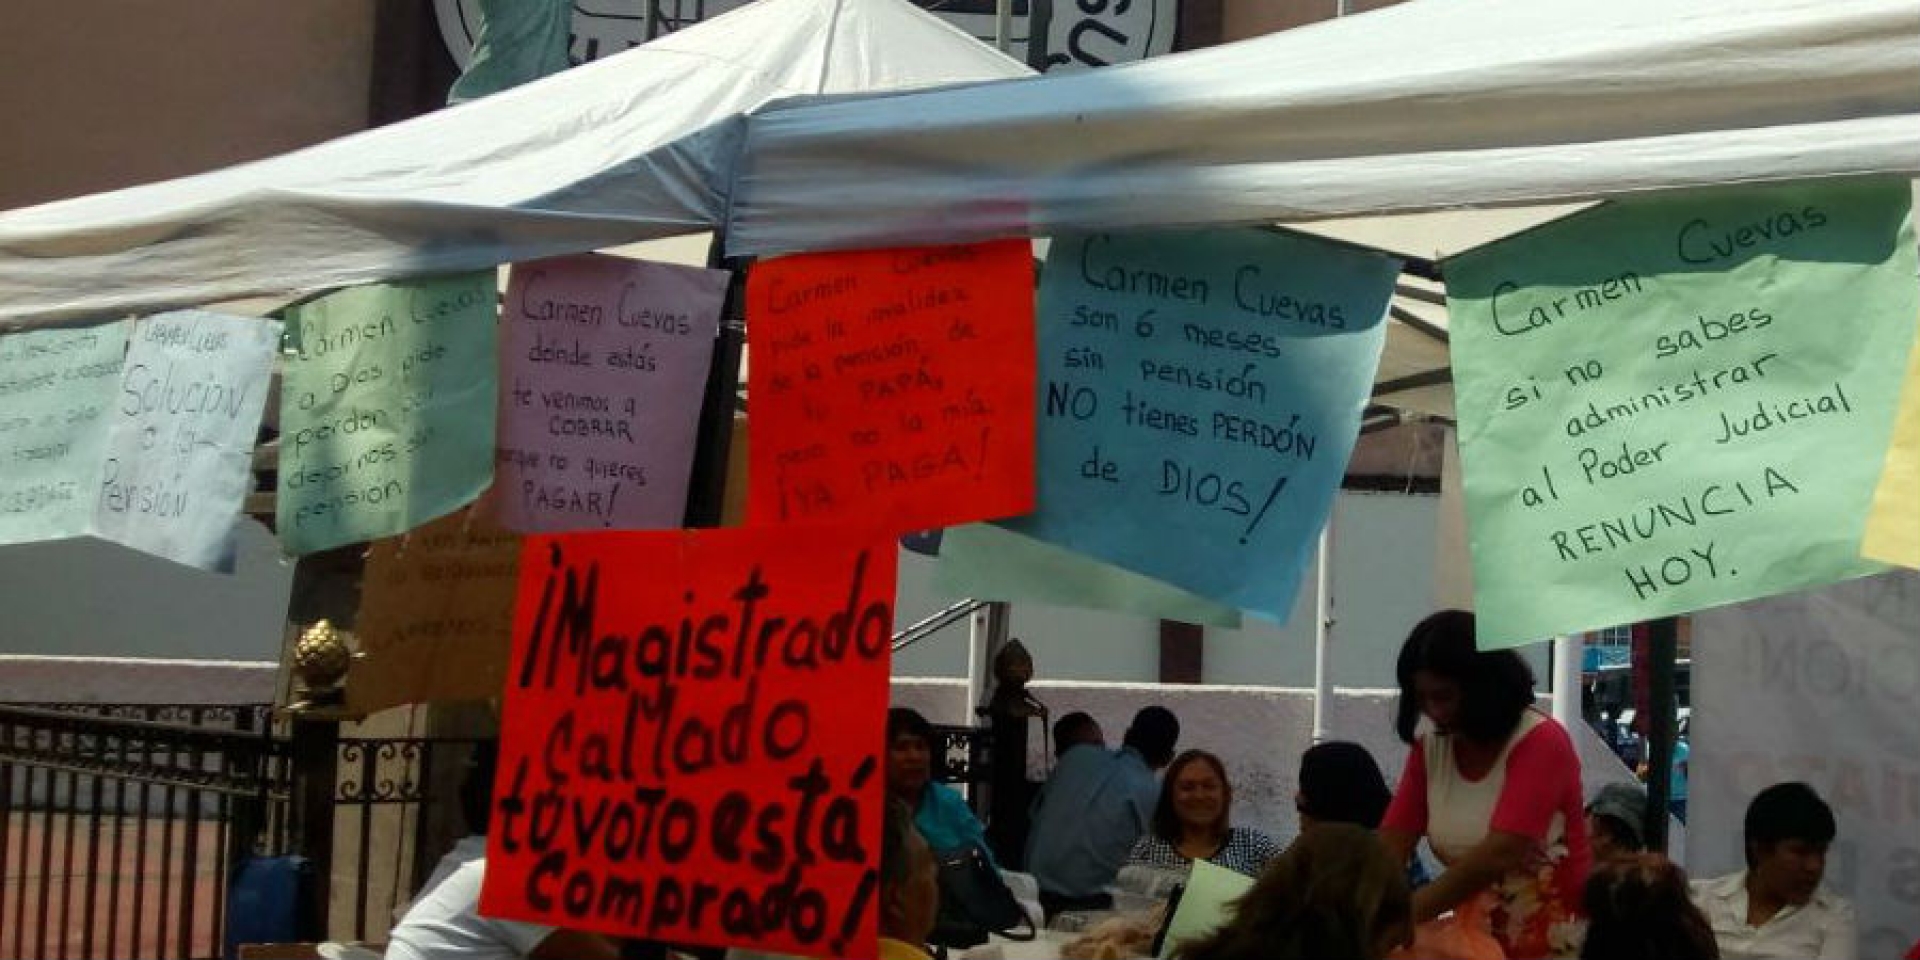 Solución
o
Pensión
Carmen Cuevas
a Dios pide
perdón por
dejarnos sin
pensión
Carmen Cuevas
dónde estás
te venimos a
COBRAR
porque no quieres
PAGAR!
Carmen Cuevas
pide la invalidez
de la pensión de
tu PAPÁ,
pero no la mía.
¡YA PAGA!
Carmen Cuevas
son 6 meses
sin pensión
NO tienes PERDÓN
de DIOS!
Carmen Cuevas
si no sabes
administrar
al Poder Judicial
RENUNCIA
HOY.
¡Magistrado
callado
tú voto está
comprado!